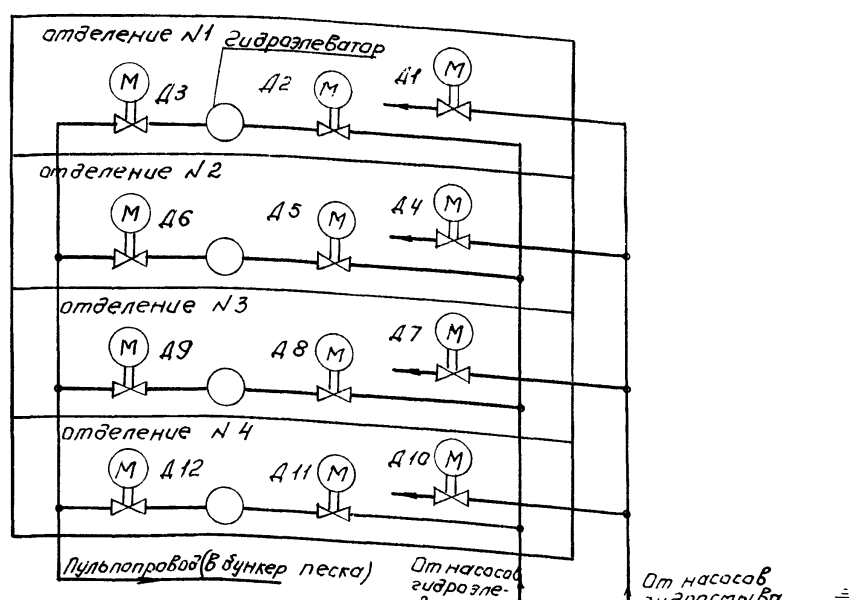 отделение №1
гидроэлеватор
М
Д3
Д2
М
Д1
М
отделение №2
М
Д6
Д5
М
Д4
М
отделение №3
М
Д9
Д8
М
Д7
М
отделение №4
М
Д12
Д11
М
Д10
М
Пульпопровод (в бункер песка)
От насосов
гидроэле-
От насосов
гидросмыва